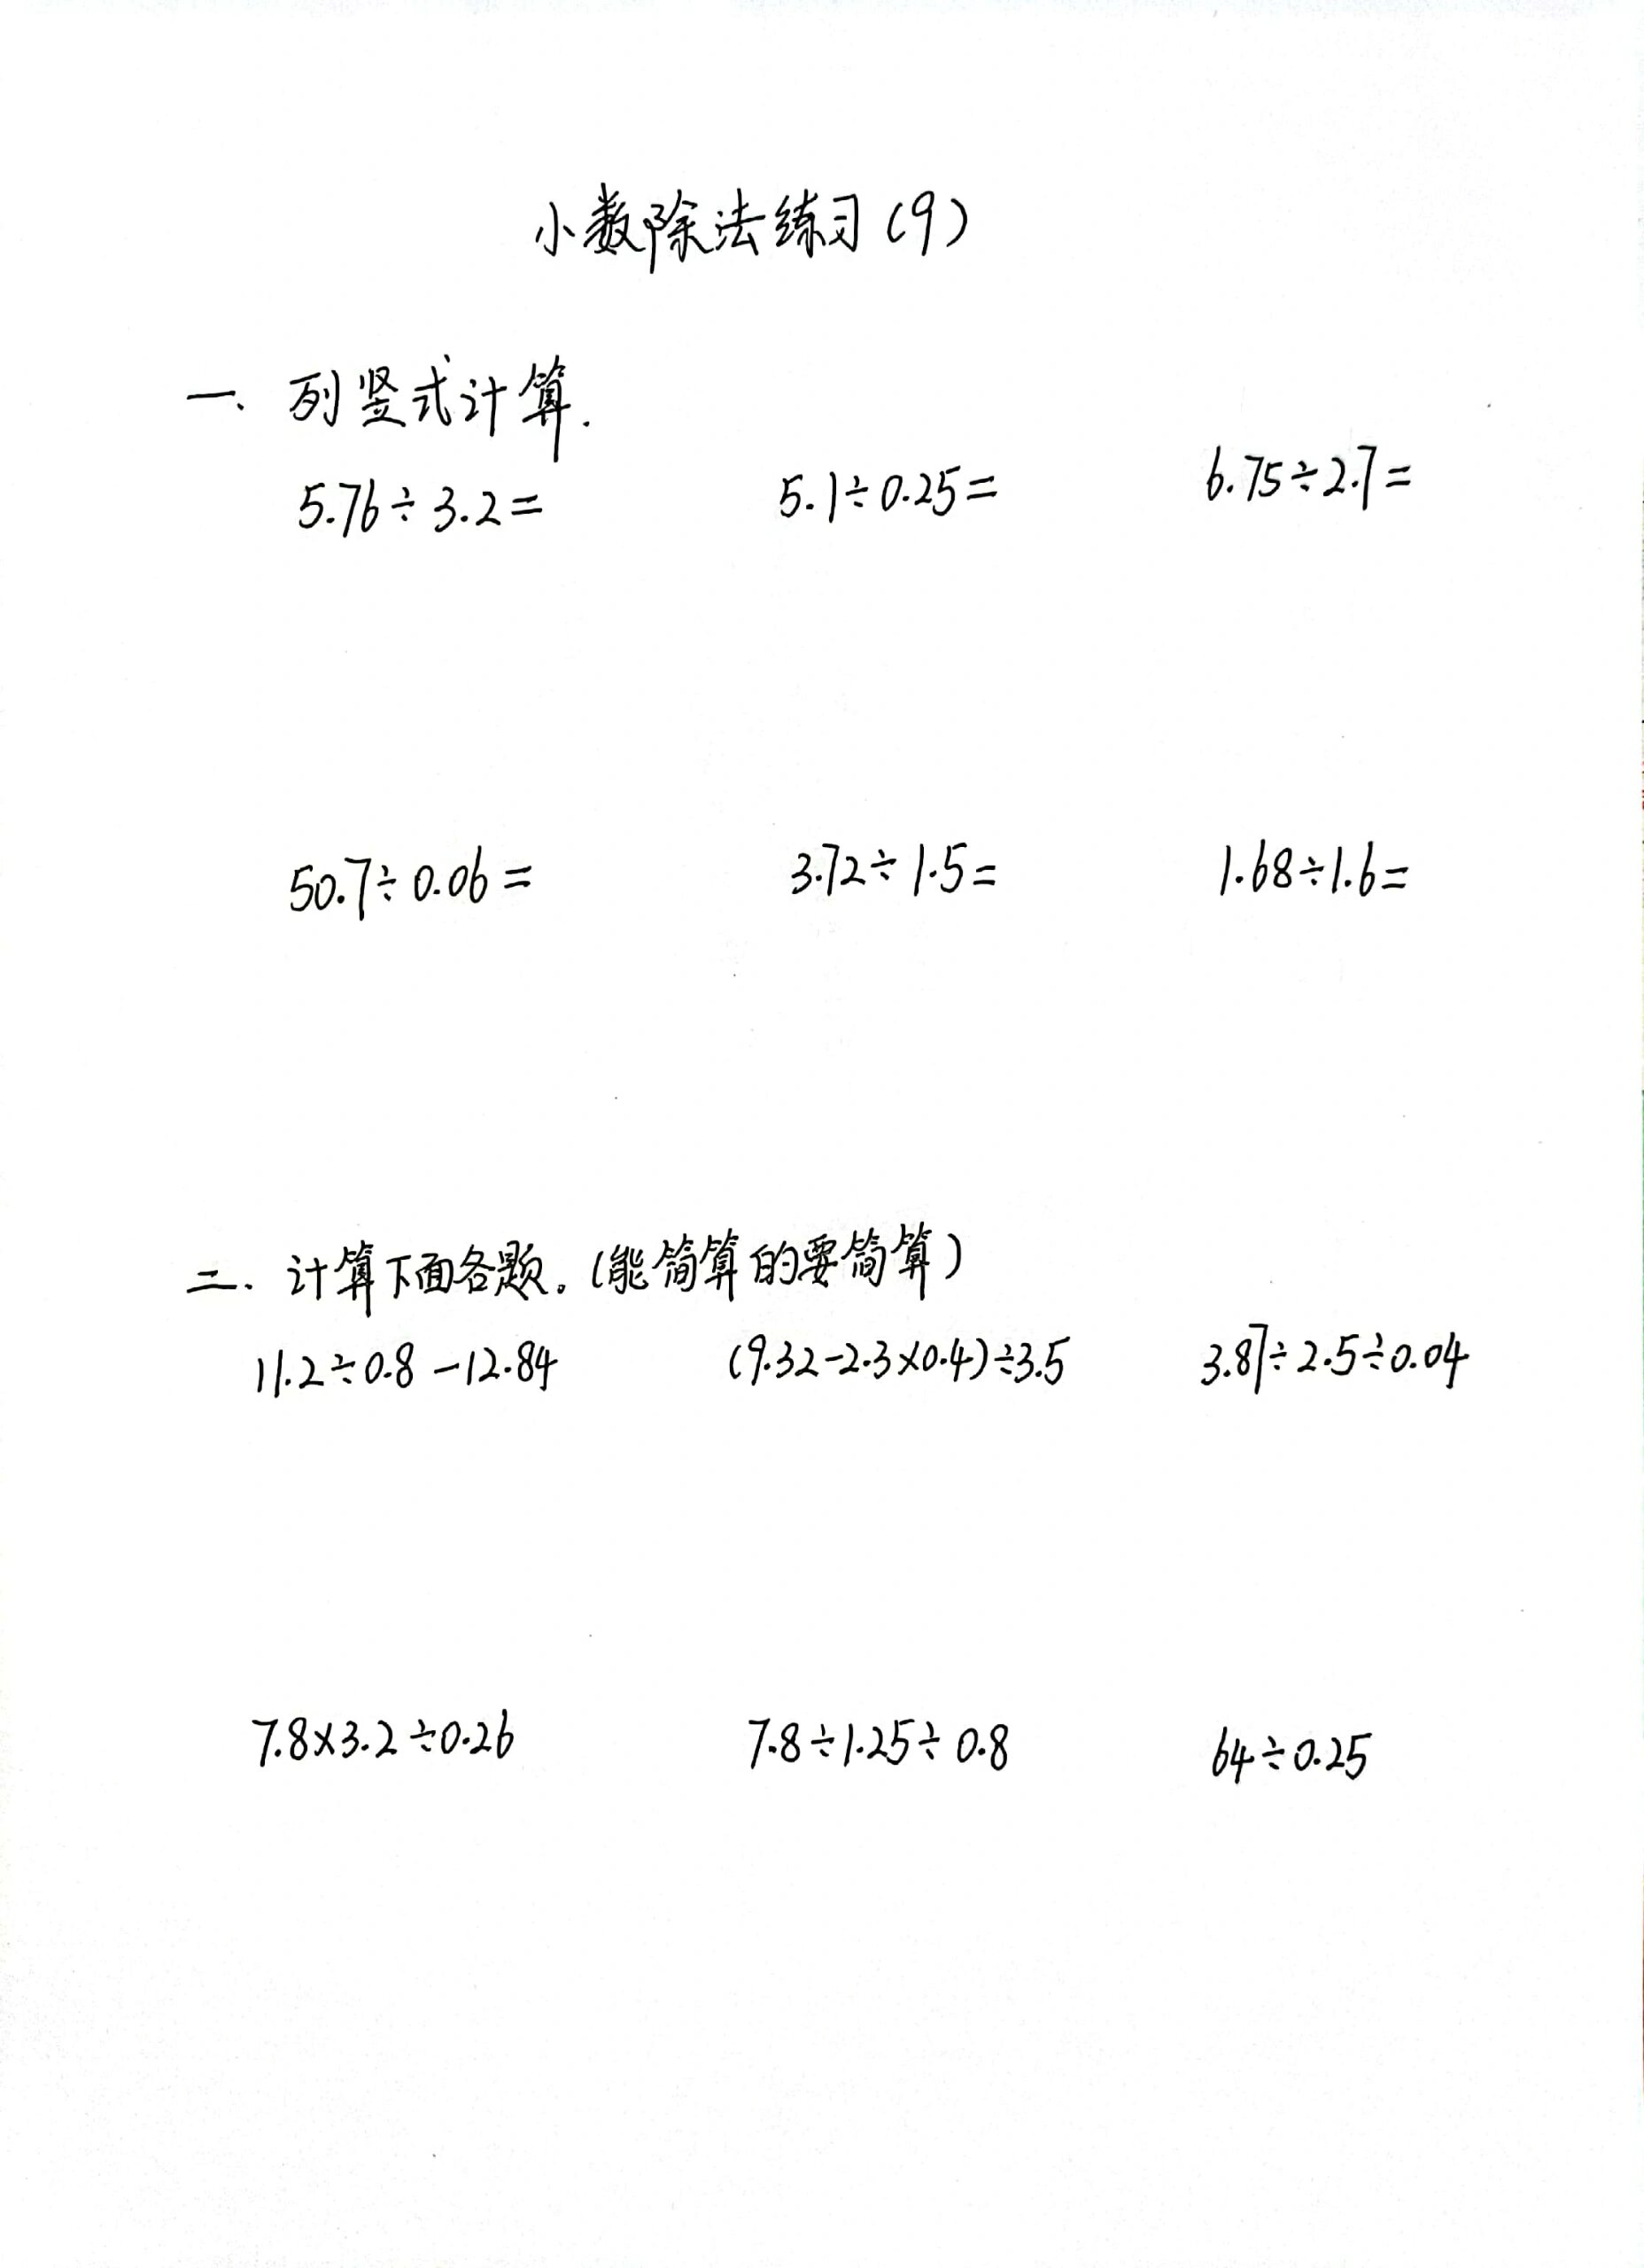 小数除法练习(9)
一、列竖式计算.
5.76÷3.2= 5.1÷0.25= 6.75÷2.7=
50.7÷0.06= 3.72÷1.5= 1.68÷1.6=
二、计算下面各题。(能简算的要简算)
11.2÷0.8-12.84 (9.32-2.3×0.4)÷3.5 3.87÷2.5÷0.04
7.8×3.2÷0.26 7.8÷1.25÷0.8 64÷0.25